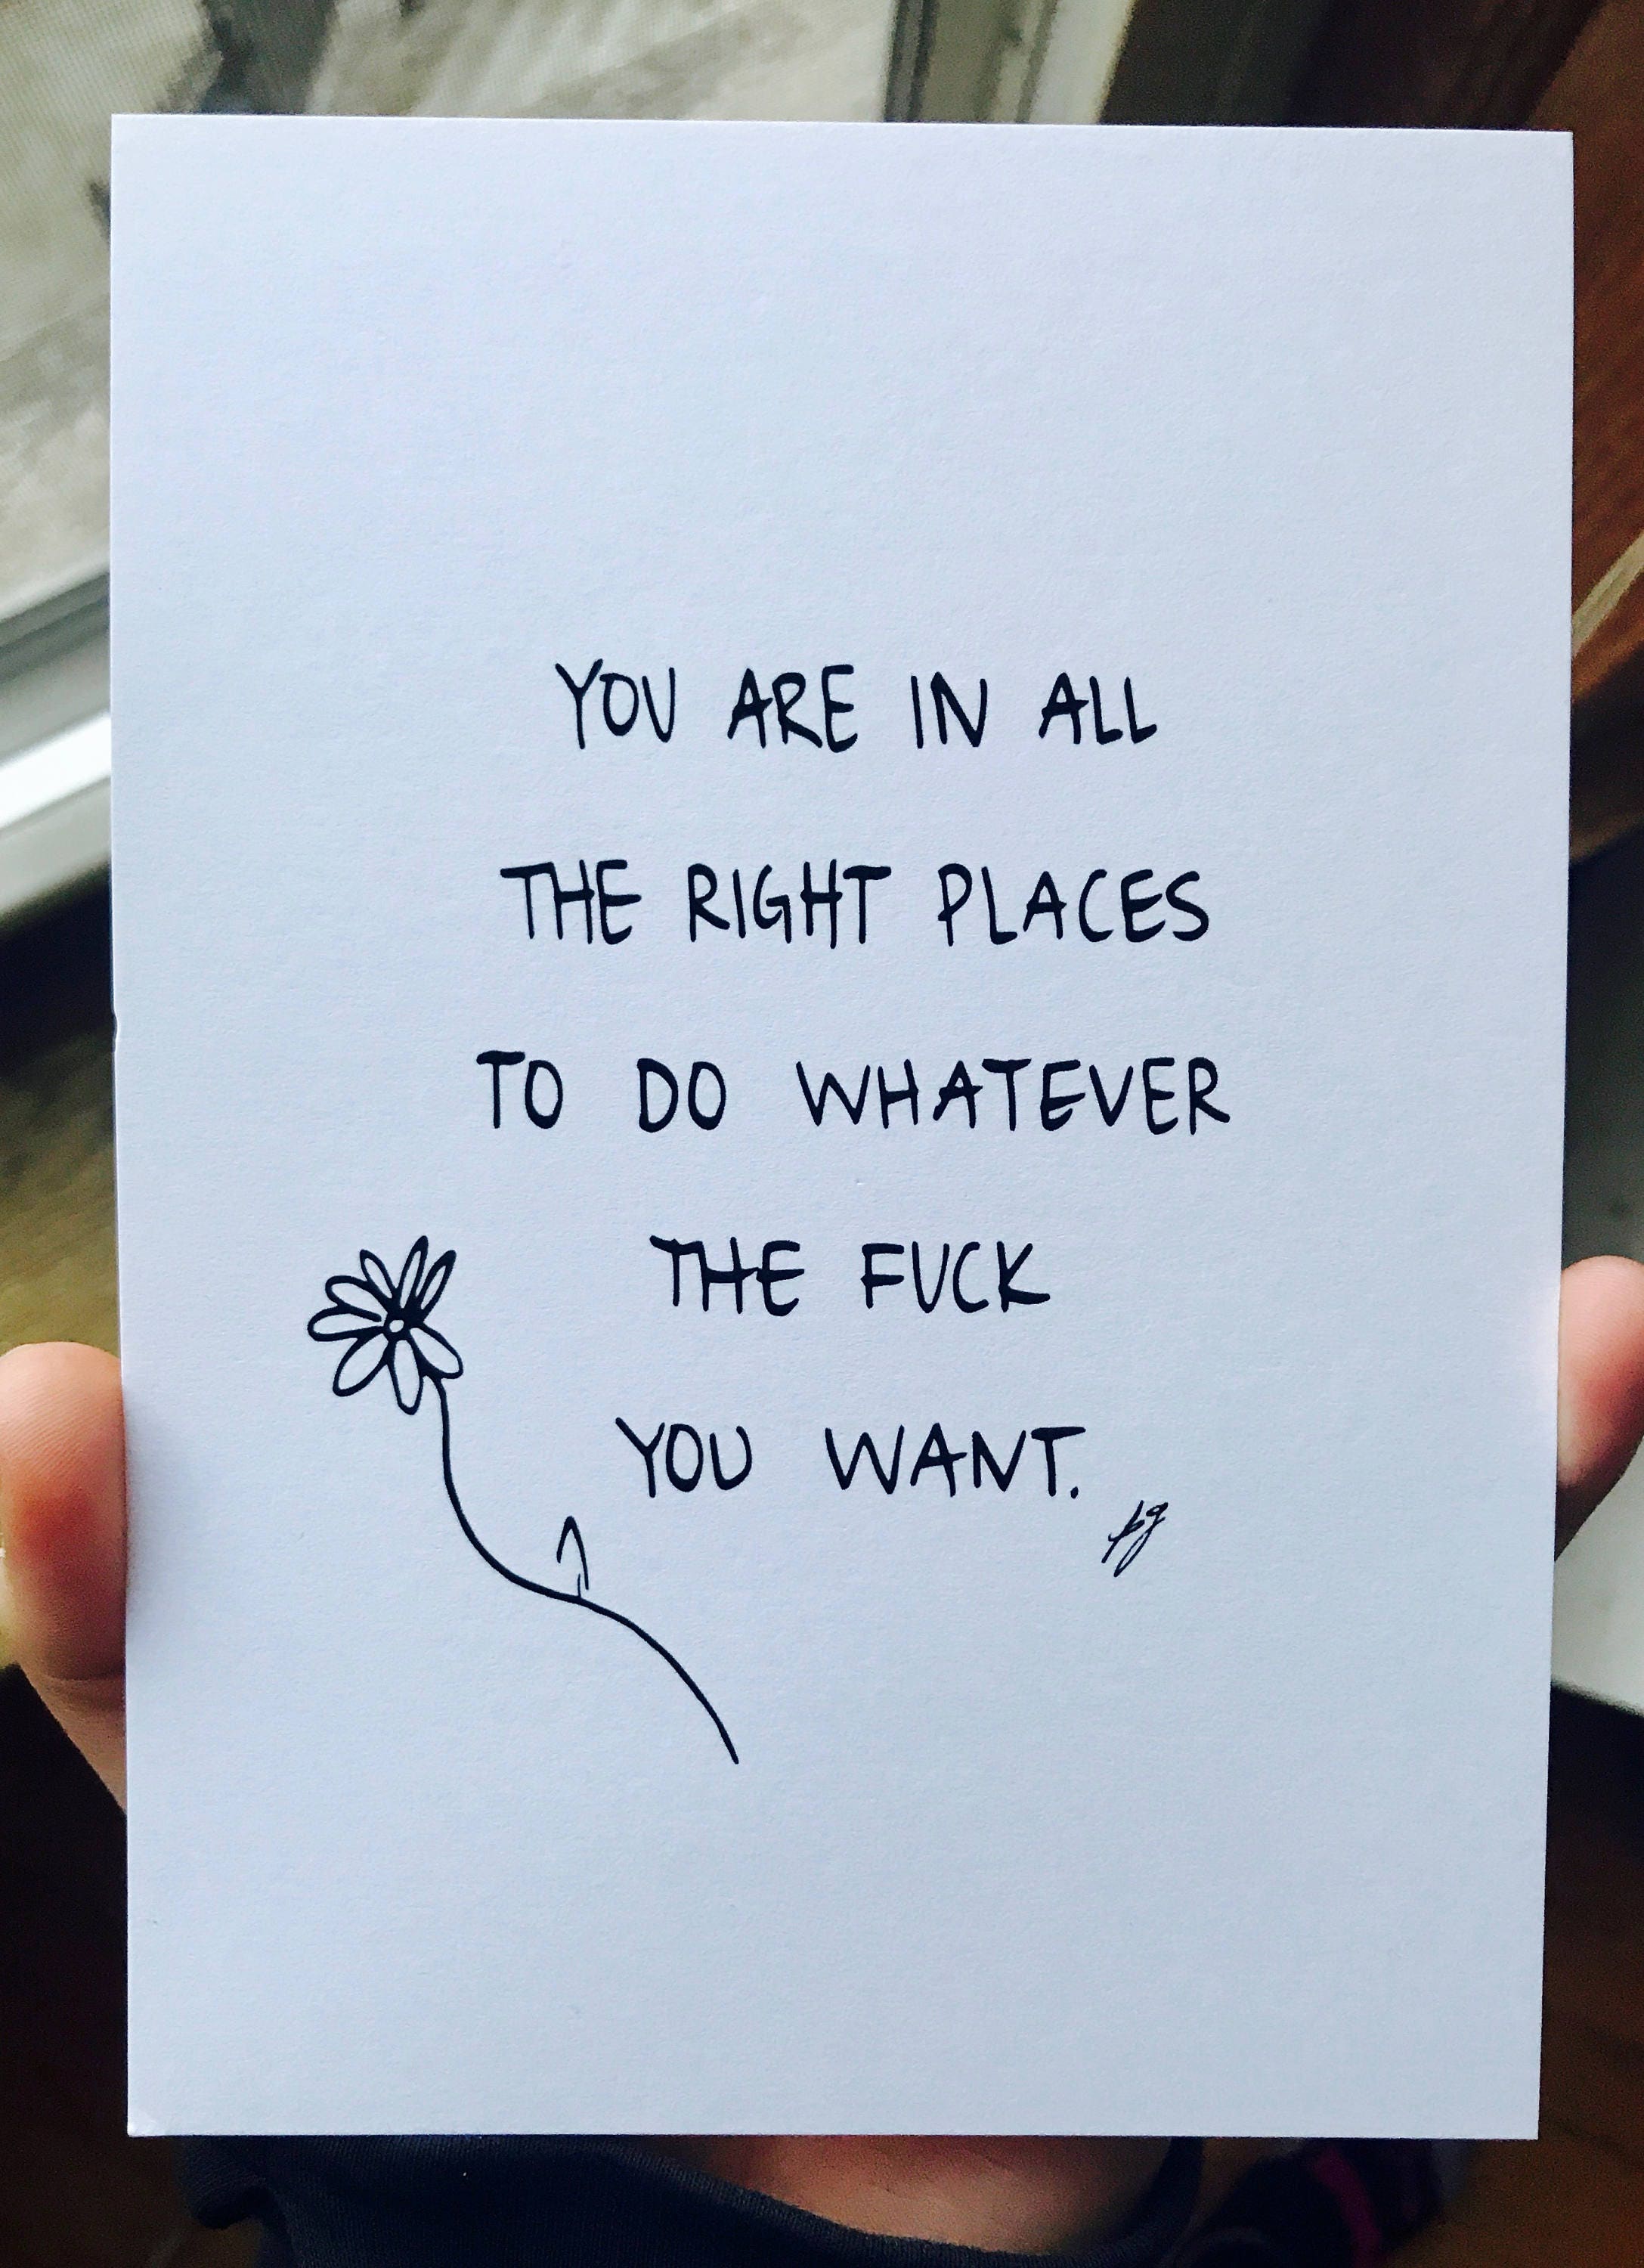 YOU ARE IN ALL
THE RIGHT PLACES
TO DO WHATEVER
THE FUCK
YOU WANT.